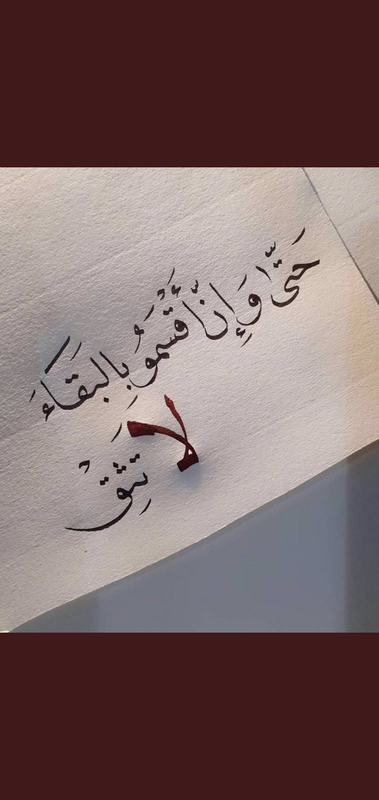 حَتّىٰ وَإِنّ أَقْسَمُوَ بِالبَقَاءَ
لَا تَثِقْ